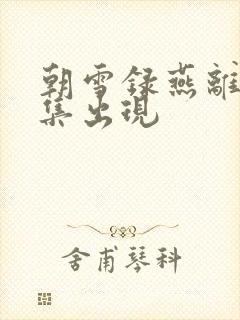 朝雪録燕離
集出現
舍甫琴科